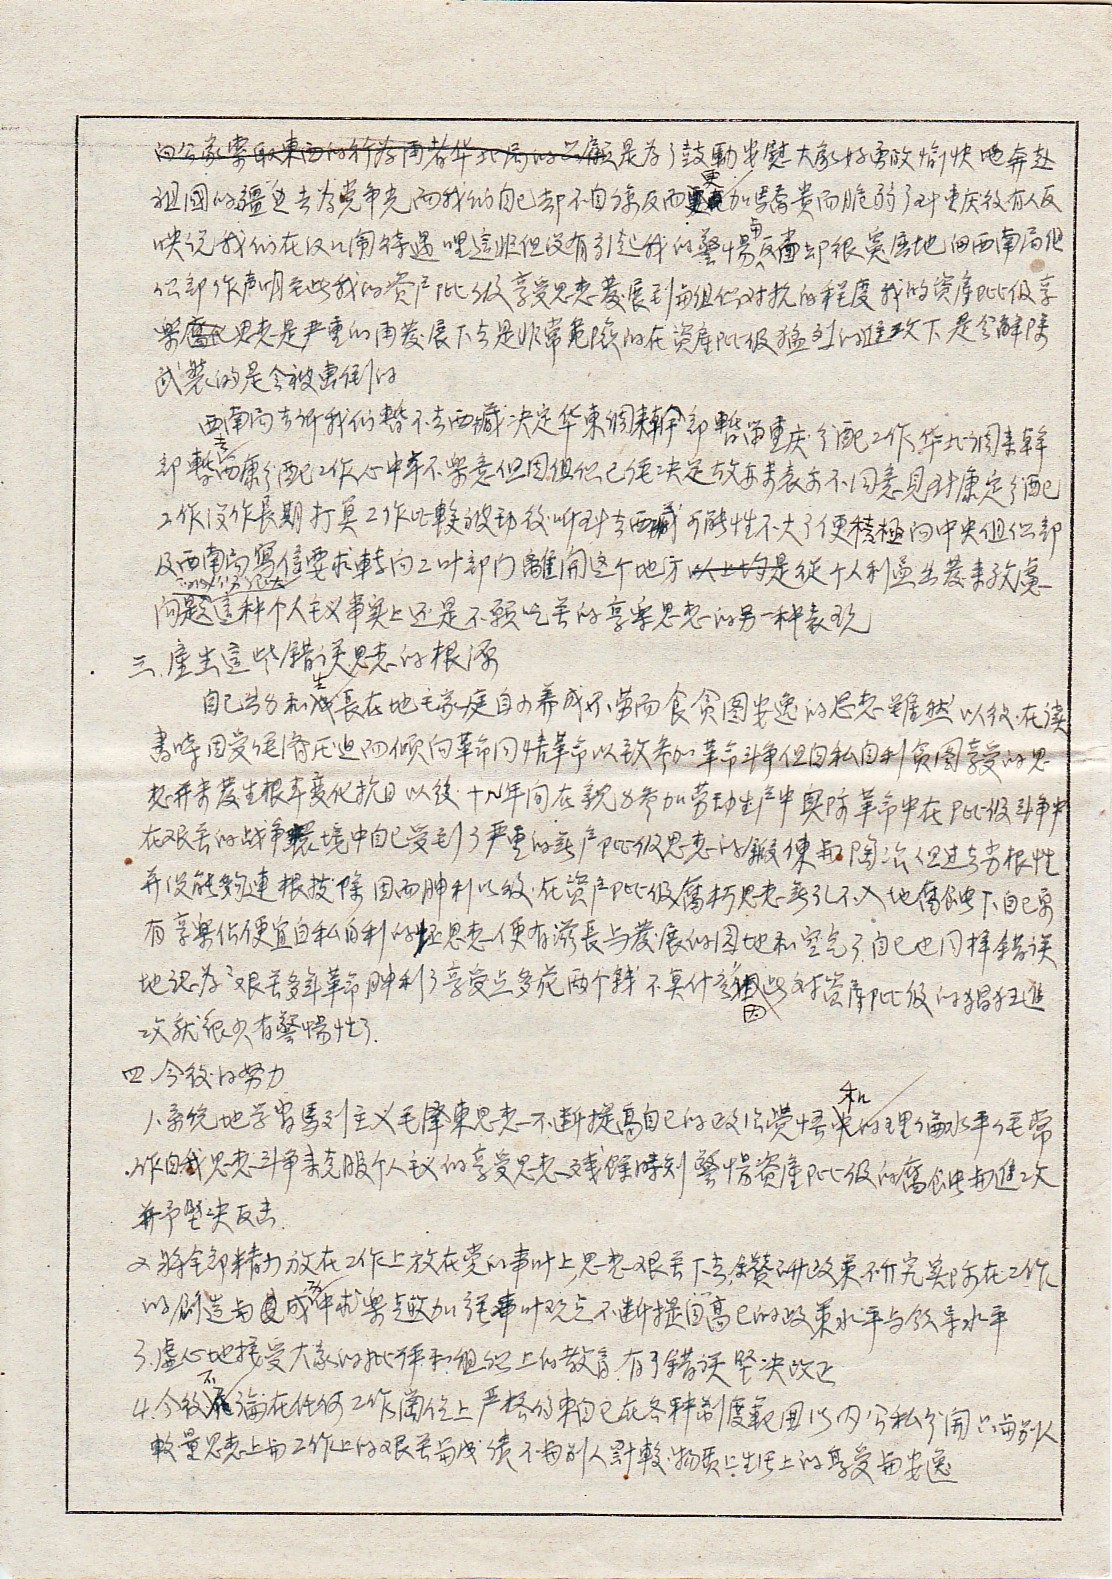 向公家要取東西的行为而者华北局的照顧是为了鼓動安慰大家好勇敢愉快地奔赴
祖國的疆边去为党争光而我们自己却不自谅反而更加驕貴而脆弱了到重庆後有人反
映说我们在汉口闹待遇哩這非但没有引起我的警惕反而却很宽庸地向西南局组
织部作声明至此我的资产阶级享受思想發展到与组织对抗的程度我的资產阶级享
樂腐化思想是严重的再發展下去是非常危险的在資產阶级猛烈的進攻下是会解除
武裝的是会被击倒的
西南局告诉我们暂不去西藏决定华東调来幹部暫留重庆分配工作华北调来幹
部暫去西康分配工作心中本不樂意但因组织已经决定故亦未表示不同意見到康定分配
工作没作長期打算工作比較被动後听到去西藏可能性不大了便積極向中央组织部
及西南局寫信要求轉向工业部门離開这个地方以上均是從个人利益出發来考慮
问题這种个人主义事实上还是不願吃苦的享樂思想的另一种表现
三、產生這些错误思想的根源
自己出身和生長在地主家庭自幼养成不劳而食贪图安逸的思想雖然以後在讀
書時因受经济压迫而倾向革命同情革命以致参加革命斗争但自私自利贪图享受的思
想并未發生根本变化抗日以後十几年间在親身参加劳动生产中實际革命中在阶级斗争中
在艰苦的战争環境中自己受到了严重的無产阶级思想的鍛鍊与陶冶但过去劣根性
并没能夠連根拔除因而勝利以後在资产阶级腐朽思想無孔不入地腐蝕下自己原
有享樂佔便宜自私自利的坏思想便有滋長与發展的园地和空气了自己也同样错误
地认为艰苦多年革命胜利了享受点多花两个錢不算什麽因此对资產阶级的猖狂進
攻就很少有警惕性了.
四、今後的努力
1.系統地学習馬列主义毛澤東思想不断提高自己的政治觉悟和的理論水平经常
作自我思想斗争来克服个人主义的享受思想残餘時刻警惕資產阶级的腐蝕与進攻
并予堅决反击.
2.将全部精力放在工作上放在党的事业上,思想艰苦下去,鑽研政策研究实际在工作
的創造与成功中求樂趣加强事业观点不断提高自己的政策水平与领导水平
3.虛心地接受大家的批评和组织上的教育.有了错误堅决改正
4.今後不論在任何工作崗位上严格约束自己在各种制度範围以内公私分開只与别人
較量思想上与工作上的艰苦与成绩不与别人計較物质上生活上的享受与安逸